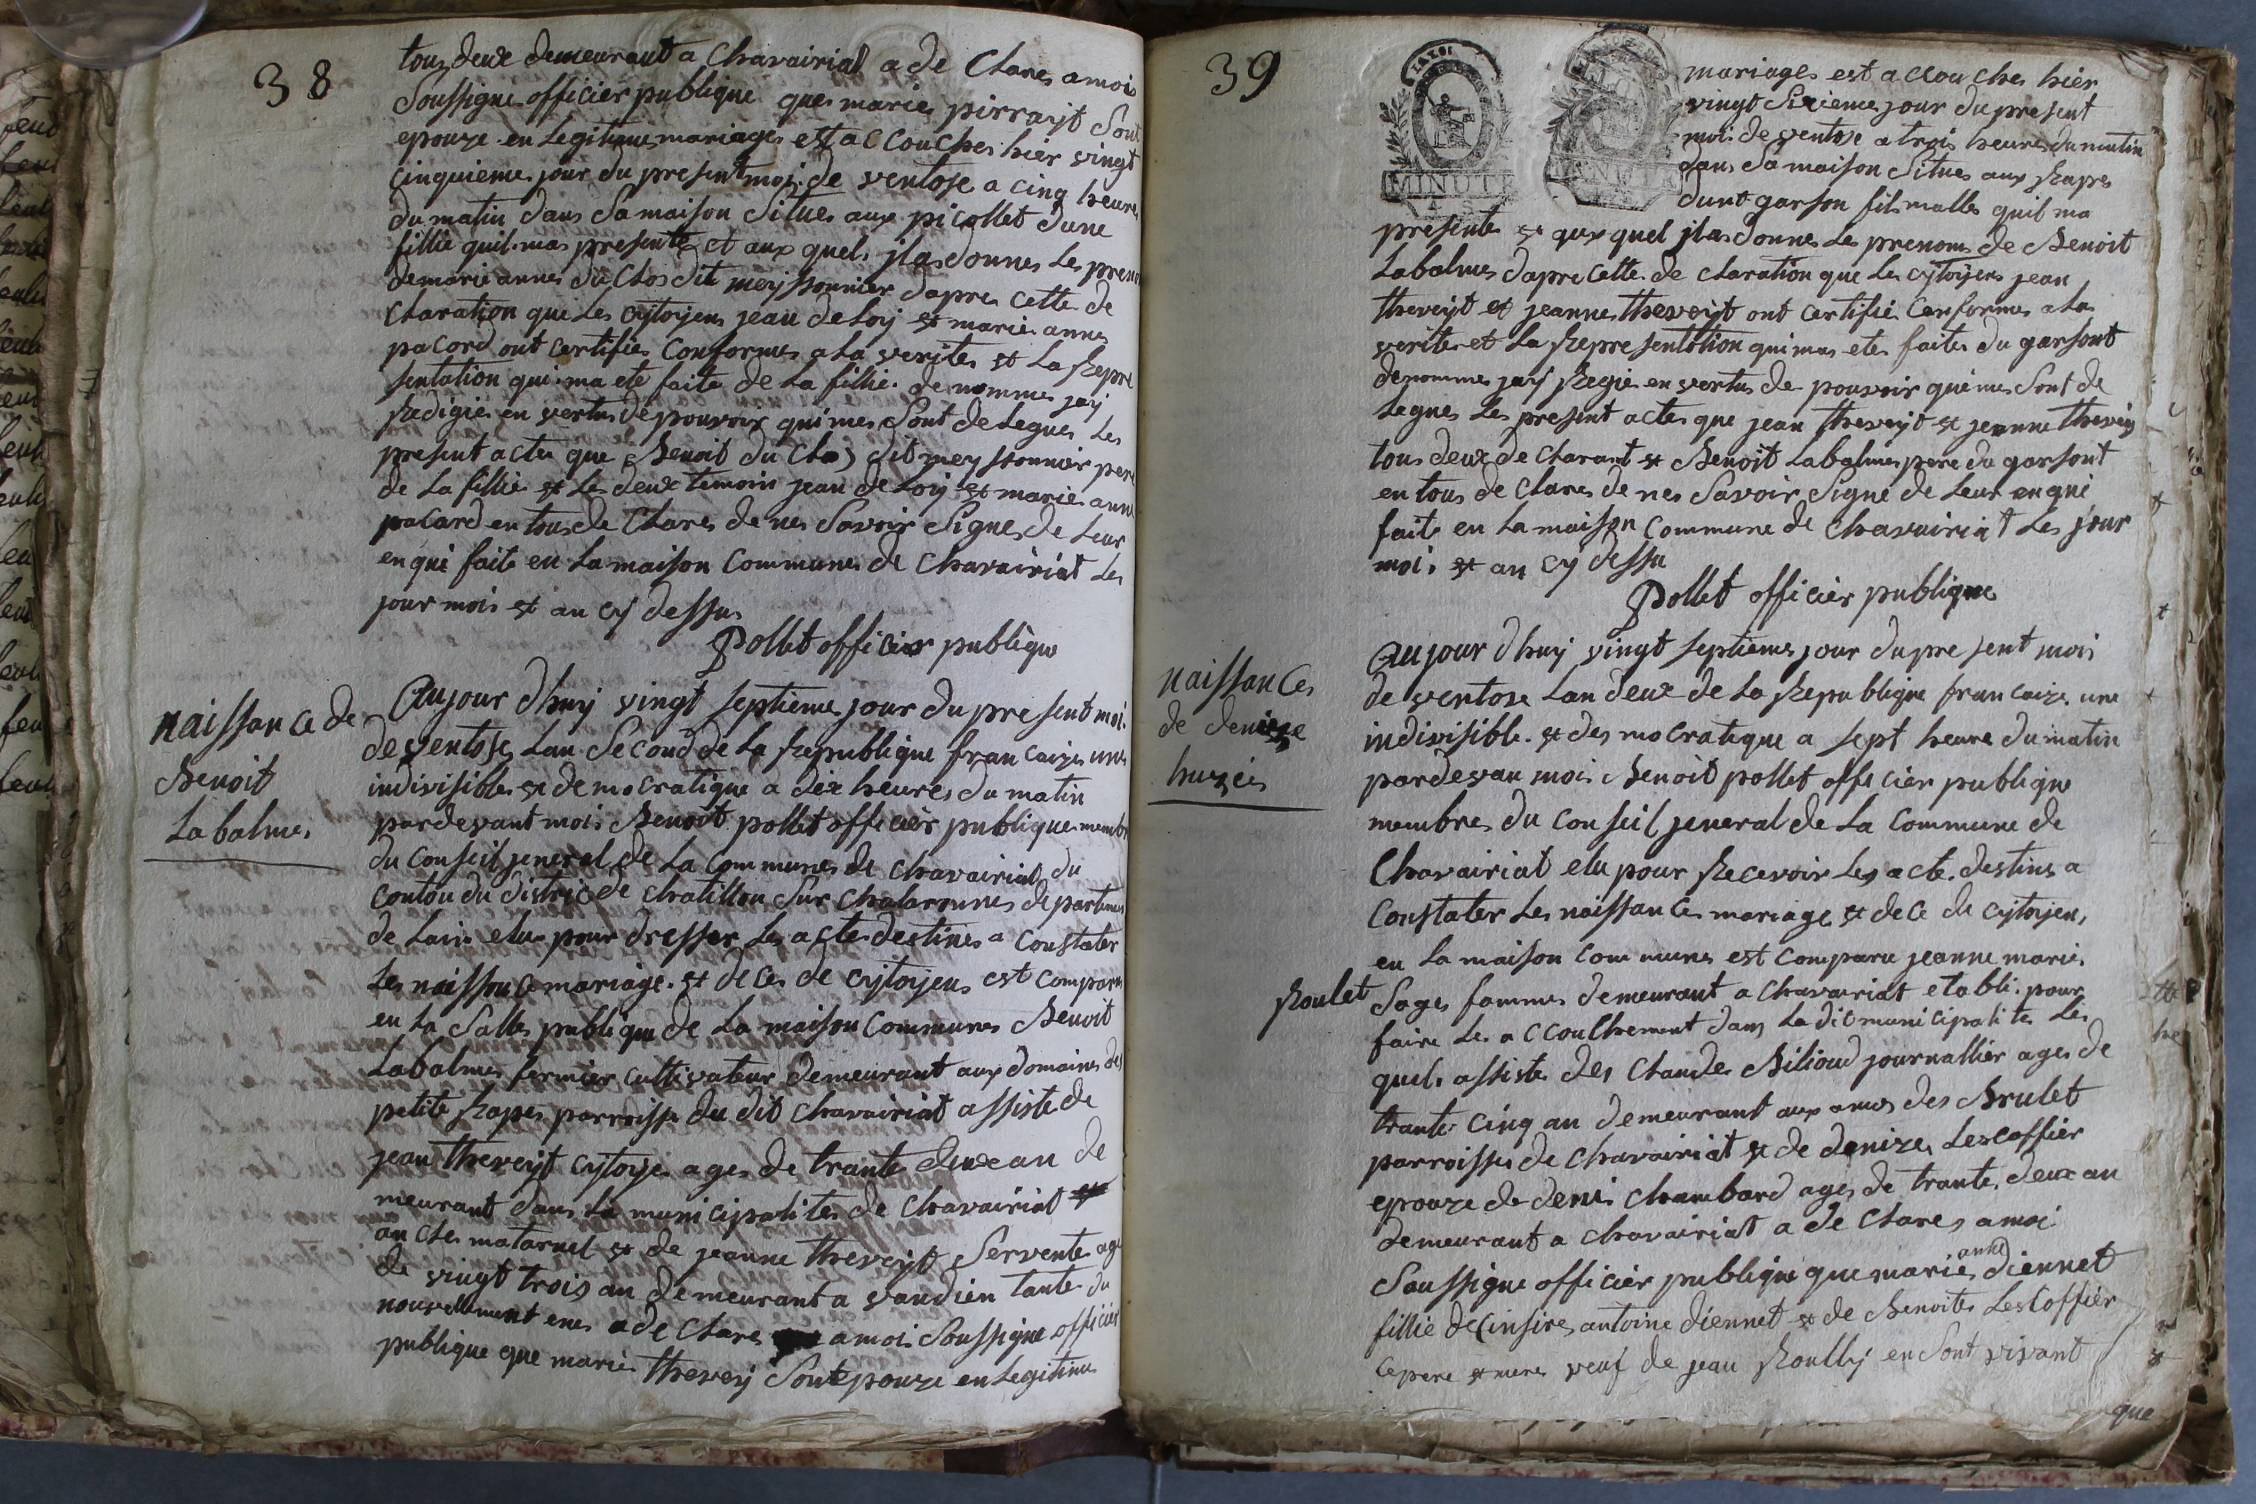 38
tous deux demeurant a Chavairiat a de Clares a moi
Soussigne officier publique ques maries pirrayt Sont
epouze en Legitime mariages est a c Couches hier vingt
Cinquiemes jour du present moi de ventose a cinq heures
du matin dans Sa maison Situes aux picollet dune
fillie quil mas presente et aux quels jlas donnes Les preno
de marie annes du Clos dit meyssonnier dapres cette de
Claration que Les cytoyens jean deloy et maries annes
pacord ont certifies Conformes a La verites et La Repre
sentation qui ma ete faite de La fillie de nommes jay
Redigies en vertus de pouvoir qui mes Sont de Legues Les
present actes que Benoit du Clos dit meyssonnier pere
de La fillie et Les deux temoin jean de Loy et maries anne
pacard en tous de Clares de nes Savoir Signes de Leur
en qui faite en La maison Communes de Chavairiat Les
jour mois et an cy dessus
Pollet officier publique
naissance de
Benoit
Labalmes
Aujour dhuy vingt septiemes jour du present moi
de ventoses Lan Second de La Republique francaizes unes
indivisibles et democratique a dix heures du matin
pardevant moi Benoit pollet officier publique membre
du Conseil jeneral de La Communes de Chavairiat du
Conton du district de Chatillon Sur Chalaronnes departemen
de Lain elus pour dresser Les acte destines a Constater
Les naissance mariage et deces de cytoyens est Comparus
en La Salles publique de La maison Communes Benoit
Labalmes fermier cultivateur demeurant aux domaines des
petite Rapes parroisse du dit Chavairiat assiste de
jean theveyt cytoye ages de trante deux an de
meurant dans La municipalites de Chavairiat
on cles matarnel et de jeanne theveyt Servente age
de vingt trois an demeurant a vandien tante du
nouvellement enes a de Clares a moi Soussigne officier
publique que maries thevey Sont epouze en Legitime
39
MINUTE
mariages est a ccouches hier
vingt Sixieme jour du present
moi de ventose a trois heures du matin
dans Sa maison Situes aux Rapes
dunt garson fils malles quil ma
presente et aux quel jlas donnes Les prenoms de Benoit
Labalmes dapre cette de claration que Les cytoyens jean
theveyt et jeannes theveyt ont certifie Conformes a La
verites et La Representation qui mas etes faites du garsont
denommes jay Regie en vertus de pouvoir qui mes Sont de
Legues Les present actes que jean theveyt et jeanne thevey
tous deux de Clarant et Benoit Labalmes pere du garsont
en tous de Clares de nes Savoir Signe de Leur en qui
faite en La maison Commune de Chavairiat Les jour
moi et an cy dessu
Pollet officier publique
naissances
de denizes
huzeis
Aujour dhuy vingt septiemes jour du present moi
de ventose Lan deux de La Republique francaize une
indivisible et des mocratique a sept heure du matin
pardevan moi Benoit pollet officier publique
membres du Conseil jeneral de La Commune de
Chavairiat elu pour Recevoir Les acte destines a
Constater Les naissances mariage et de ce de cytoyen,
en La maison communes est comparu jeanne marie
Roulet Sages fammes demeurant a Chavairiat etabli pour
faire Les a ccouchement dans La dit municipalites Les
quel assiste des Claudes Biliond journallier ages de
trante Cinq an demeurant aux amos des Brulet
parroisses de Chavairiat et de denizes Lescoffier
epouze de denis Chambard ages de trante deux an
demeurant a Chavairiat a de Clares a moi
Soussigne officier publique que maries anne diennet
fillie de Cinsires antoine diennet et de Benoites Lescoffier
ce pere et mere veuf de jean Roully en Sont vivant
que